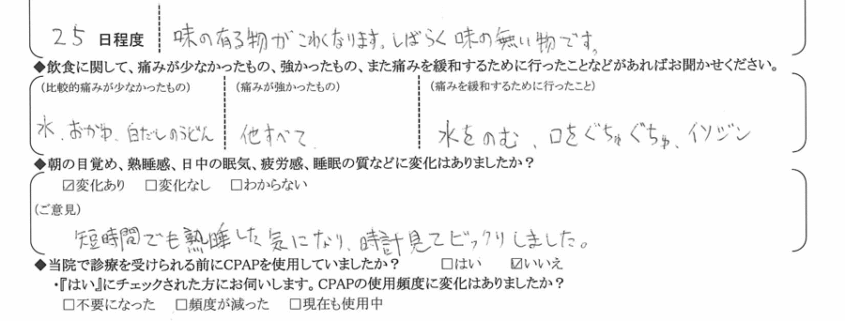 25 日程度 味の有る物がこわくなります。しばらく味の無い物です。
◆飲食に関して、痛みが少なかったもの、強かったもの、また痛みを緩和するために行ったことなどがあればお聞かせください。
(比較的痛みが少なかったもの) (痛みが強かったもの) (痛みを緩和するために行ったこと)
水、おかゆ、白だしのうどん 他すべて 水をのむ、口をぐちゅぐちゅ、イソジン
◆朝の目覚め、熟睡感、日中の眠気、疲労感、睡眠の質などに変化はありましたか?
☑変化あり □変化なし □わからない
(ご意見)
短時間でも熟睡した気になり、時計見てビックリしました。
◆当院で診療を受けられる前にCPAPを使用していましたか? □はい ☑いいえ
・『はい』にチェックされた方にお伺いします。CPAPの使用頻度に変化はありましたか?
□不要になった □頻度が減った □現在も使用中